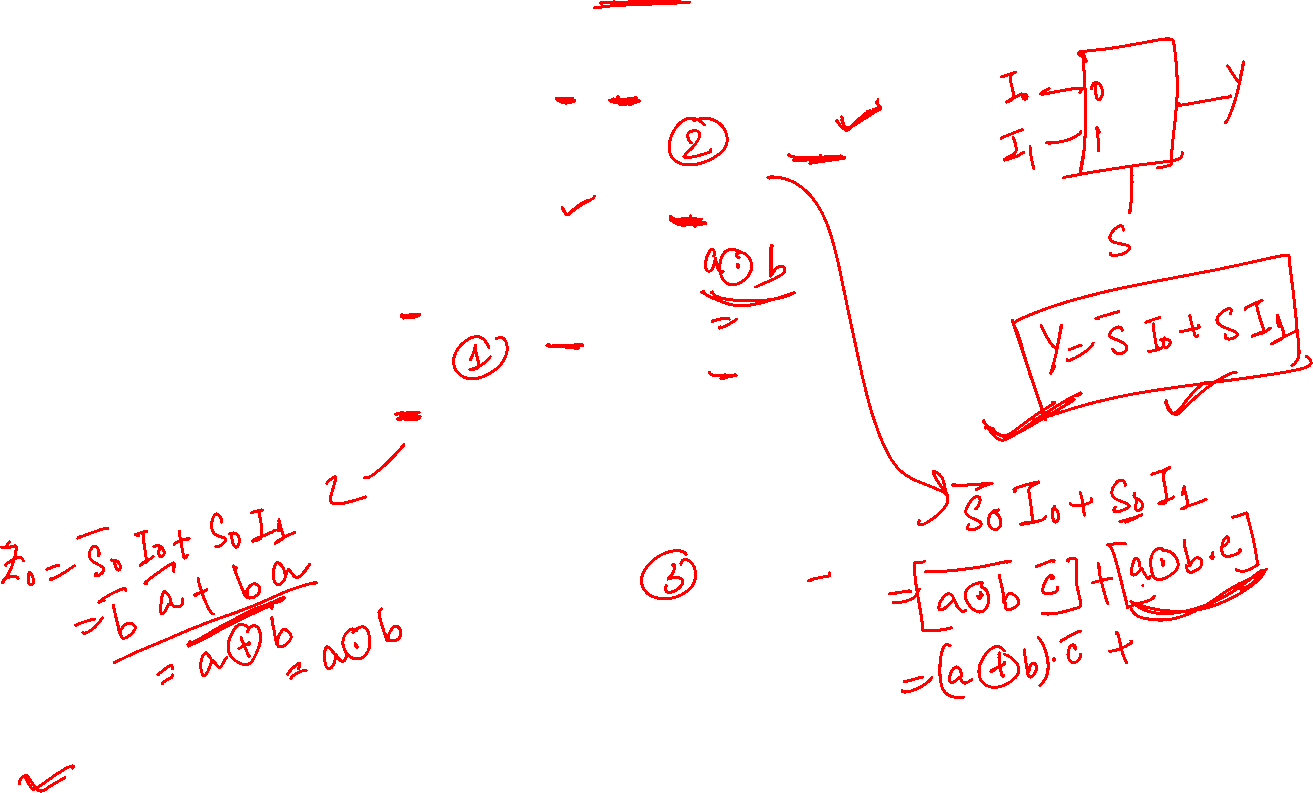 I₀ 0
②
Y
I₁ 1
S
a⊙b
=
Y = S̅ I₀ + S I₁
①
Z₀ = S̅₀ I₀ + S₀ I₁
= b̅ a̅ + b a
= \overline{a⊕b} = a⊙b
S̅₀ I₀ + S₀ I₁
③
= [\overline{a⊙b} c̅] + [a⊙b·c]
= (a⊕b)·c̅ +